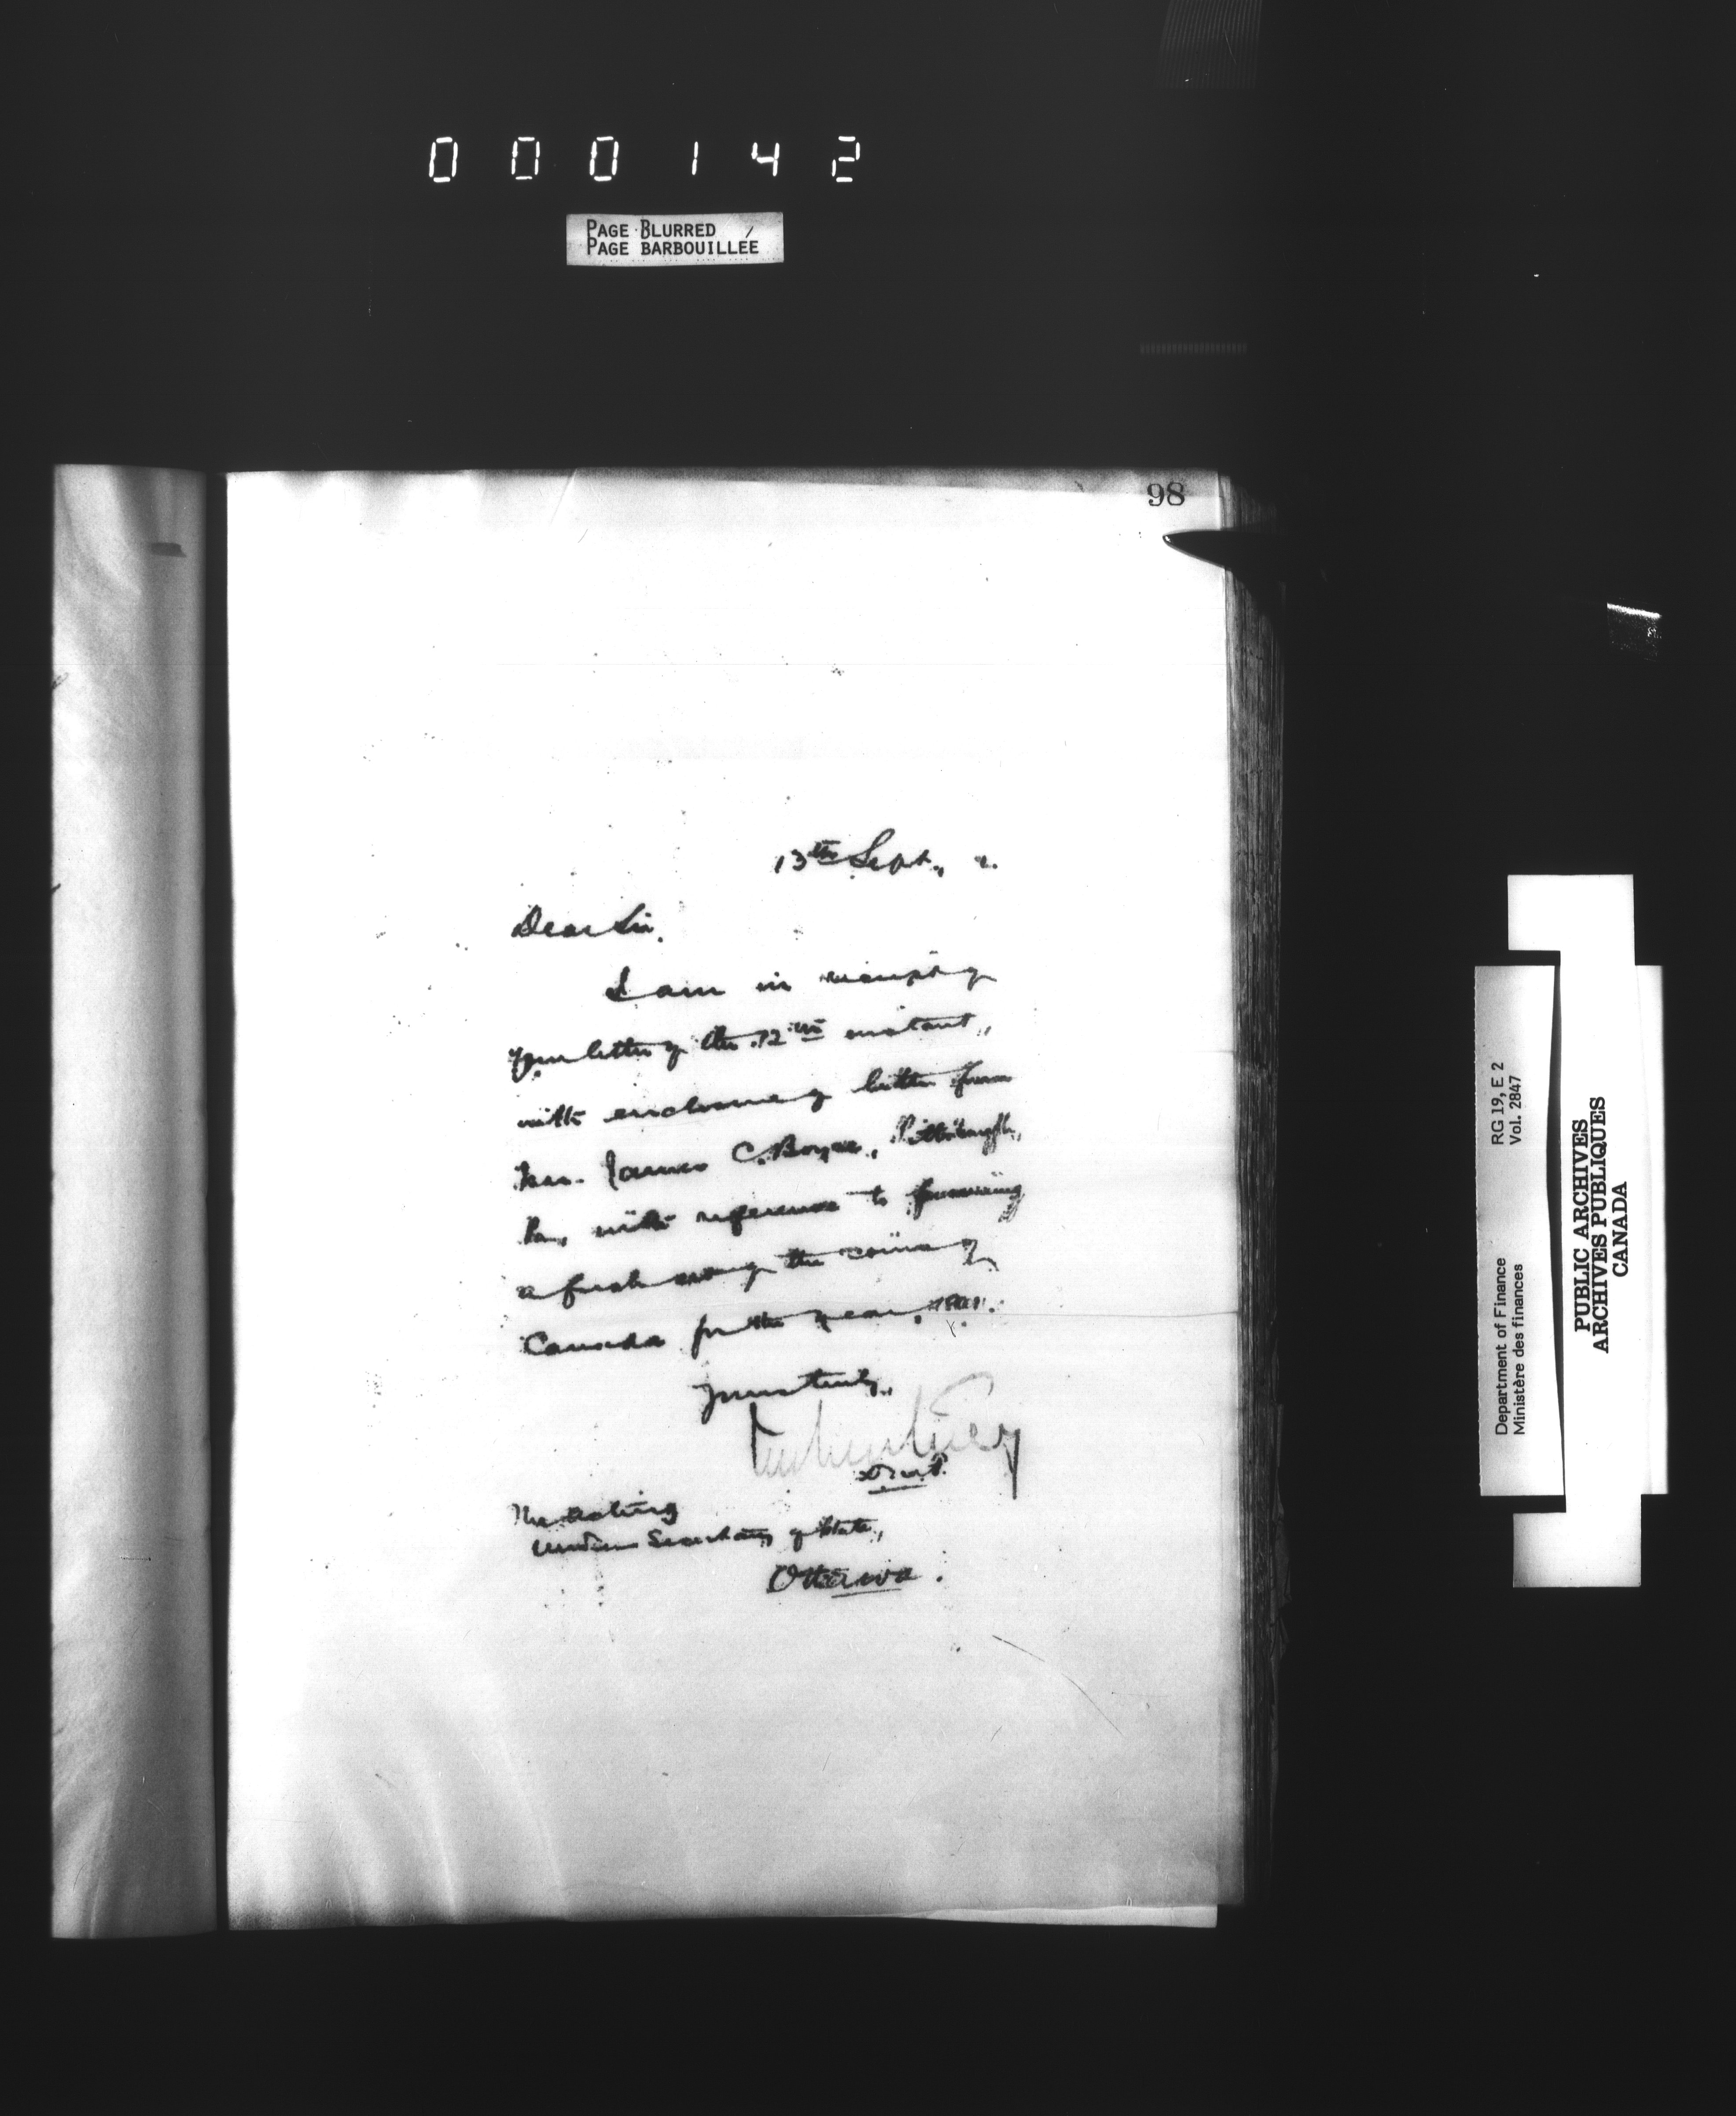 000142
PAGE BLURRED
PAGE BARBOUILLÉE
98
13th Sept., 2.
Dear Sir,
I am in receipt of
your letter of the 12th instant,
with enclosure of letter from
Mr. James C. Boyce, Pittsburgh,
Pa., with reference to procuring
a fresh set of the coins of
Canada for the year
Yours truly,
The Acting
Under Secretary of State,
Ottawa.
RG 19, E 2
Vol. 2847
Department of Finance
Ministère des finances
PUBLIC ARCHIVES
ARCHIVES PUBLIQUES
CANADA